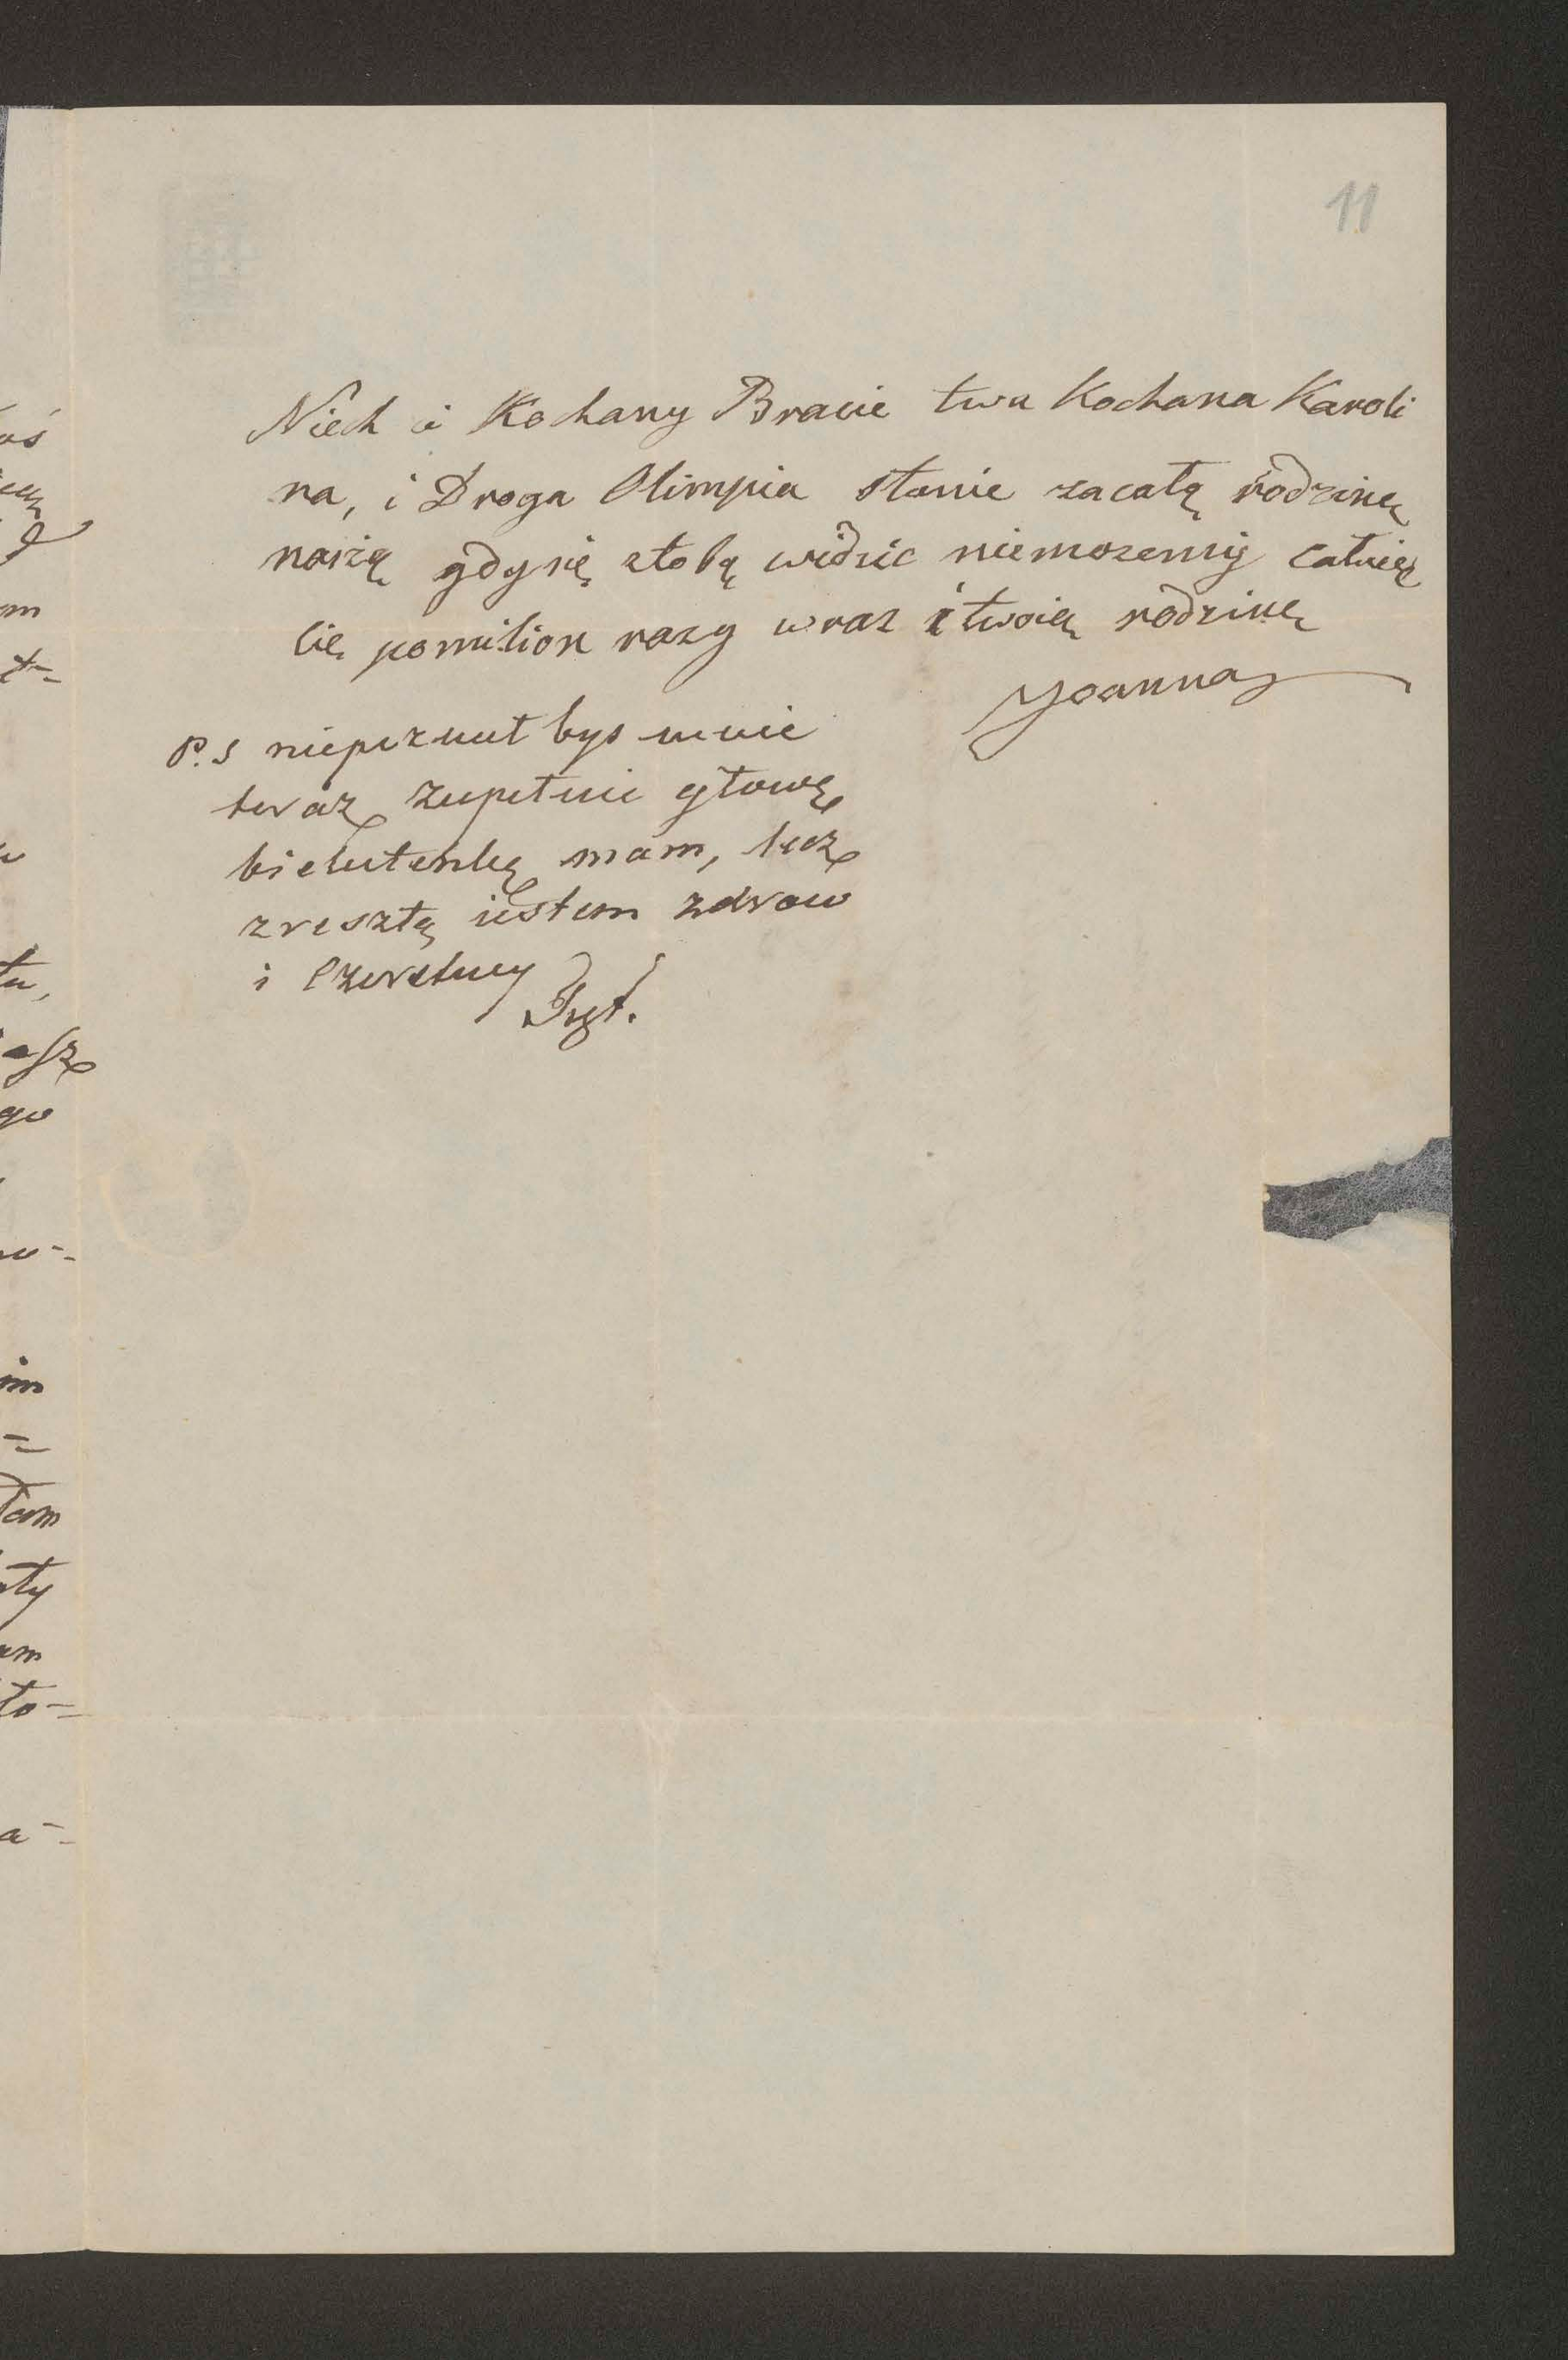 11
Niech ci Kochany Bracie twa Kochana Karoli
na, i Droga Olimpia stanie zacałą rodzinę
naszą gdysię ztobą widzić niemozemy całuię
cię pomilion razy wraz i twoią rodzinę
Joanna
P.S niepoznał bys mnie
teraz zupełnie głowę
bielutenką mam, lecz
zresztą iestem zdrow
i Czerstwy